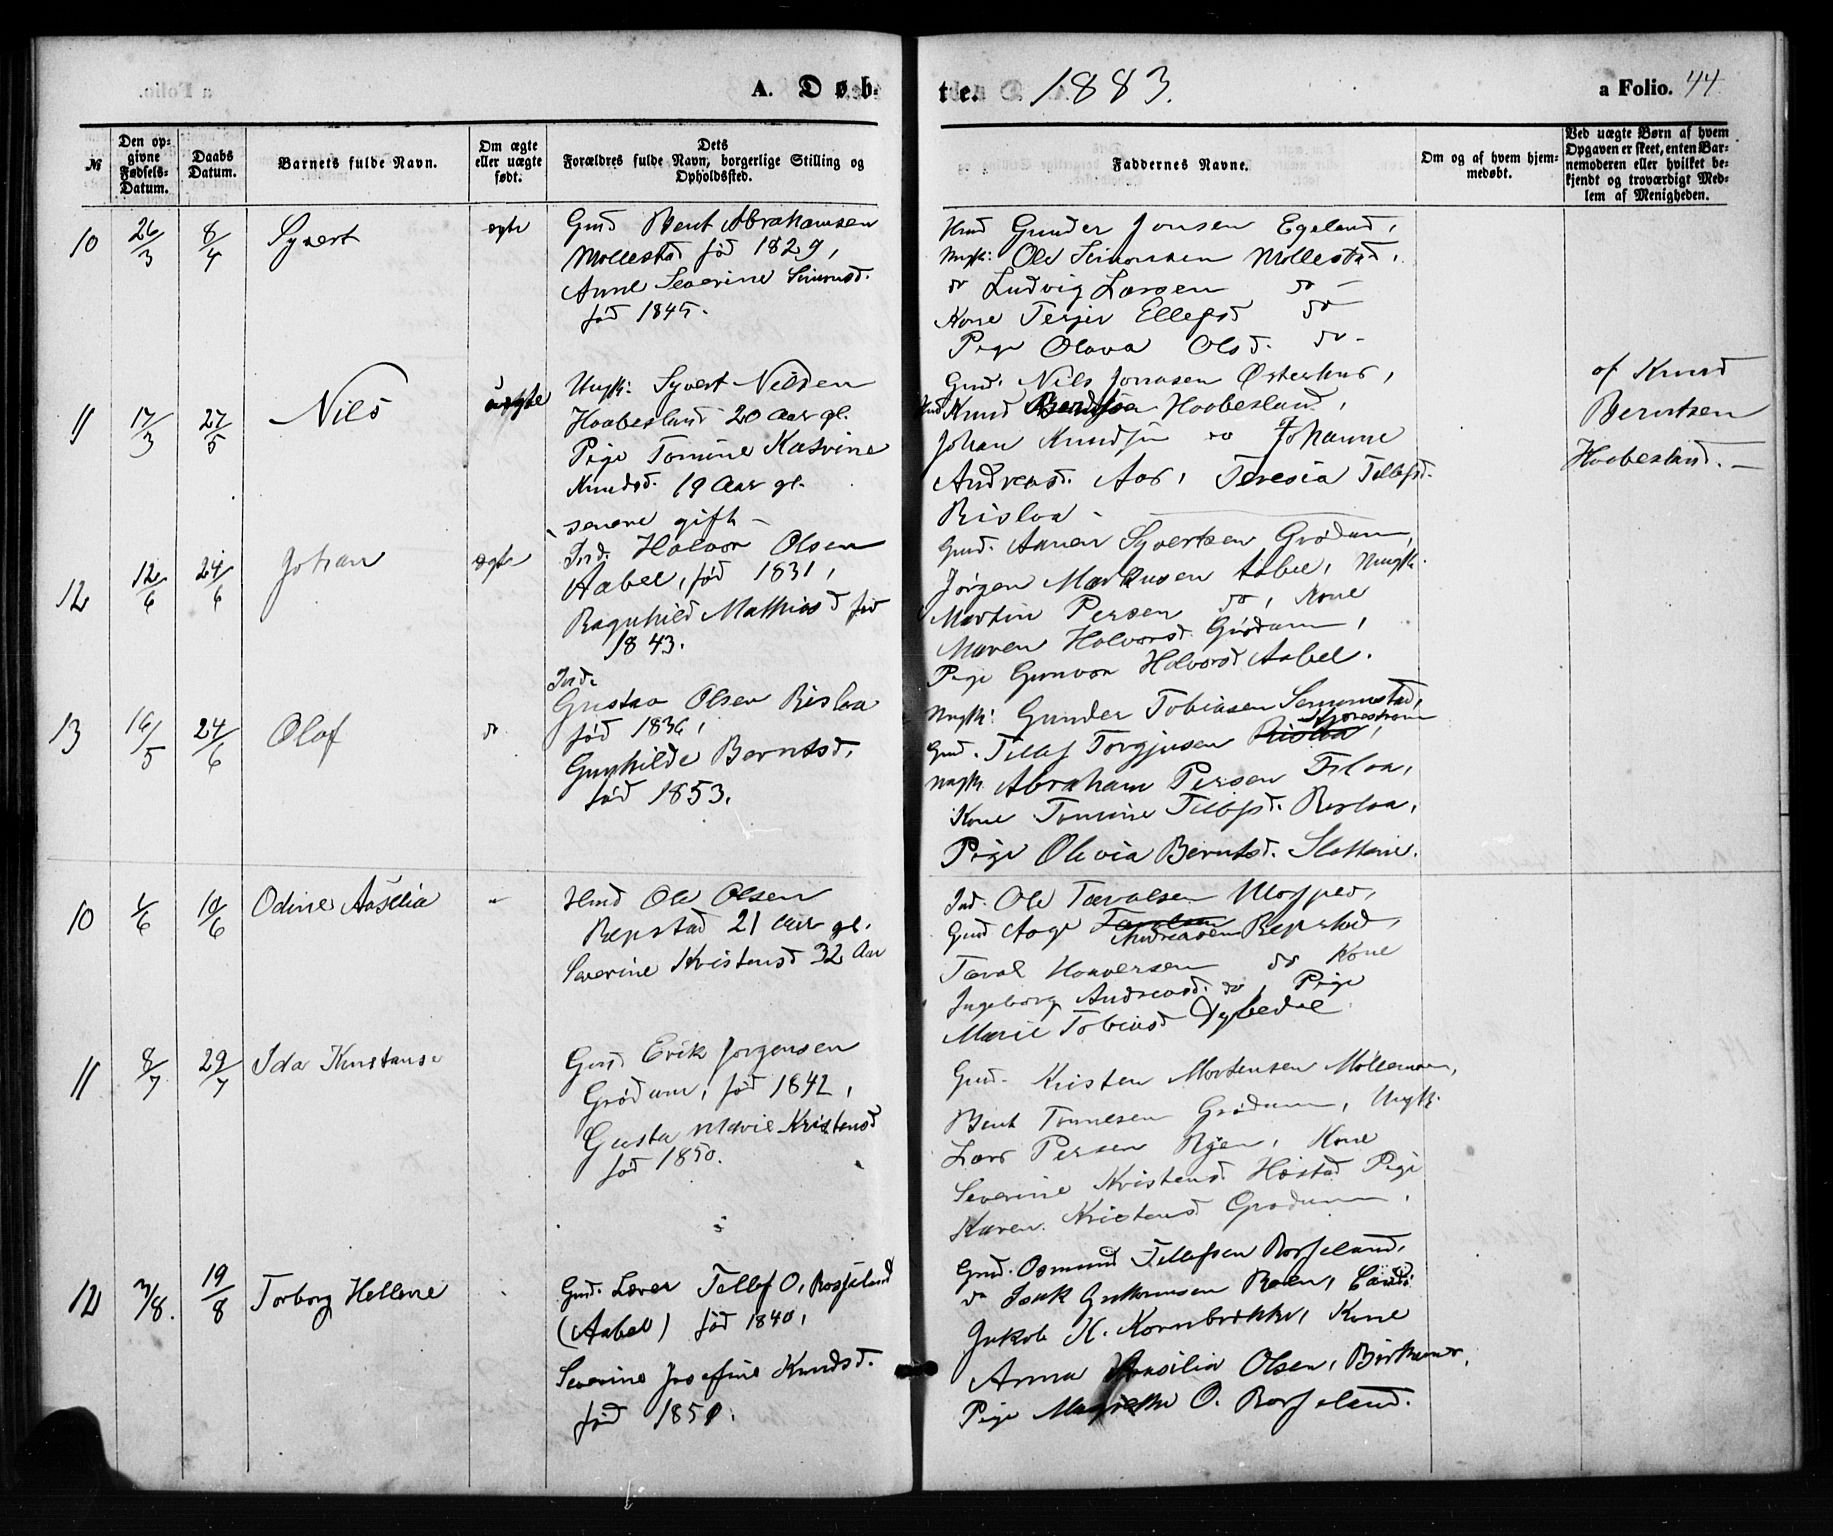 A. Døb-
te. 1883.
a Folio. 44
№
Den op-
givne
Fødsels-
Datum.
Daabs
Datum.
Barnets fulde Navn.
Om ægte
eller uægte
født.
Dets
Forældres fulde Navn, borgerlige Stilling og
Opholdssted.
Faddernes Navne.
Om og af hvem hjem-
medøbt.
Ved uægte Børn af hvem
Opgaven er skeet, enten Bar-
nemoderen eller hvilket be-
kjendt og troværdigt Med-
lem af Menigheden.
10 26/3 8/4 Syvert ægte
Gmd Bent Abrahamsen
Mollestad fød 1829,
Anne Severine Simonsd.
fød 1845.
Hmd Gunder Jonsen Egeland,
Ungk: Ole Simonsen Mollestad,
do Ludvig Larsen do —
Kone Terjer Ellefsd do —
Pige Olava Olsd. do -
11 17/3 27/5 Nils uægte
Ungk: Syvert Nilsen
Haabesland 20 Aar gl.
Pige Tomine Kasvine
Knudsd. 19 Aar gl.
senere gift —
Gmd. Nils Jonasen Østerhus,
Knud Berntsen Haabesland,
Johan Knudsen do Johanne
Andreasd. Aas, Teresia Tellefsd.
Risløa -
af Knud
Berntsen
Haabesland. —
12 12/6 24/6 Johan ægte
Ind. Halvor Olsen
Aabel, fød 1831,
Ragnhild Mathiasd fød
1843.
Gmd. Aanen Syvertsen Grødum,
Jørgen Markusen Aabel, Ungk.
Martin Persen do, Kone
Maren Halvorsd. Grødum,
Pige Gunvor Halvorsd Aabel.
13 16/5 24/6 Olaf do
Ind.
Gustav Olsen Risløa
fød 1836,
Gunhilde Berntsd.
fød 1853.
Ungk: Gunder Tobiasen
Gmd. Tellef Torgjusen Risløa,
Ungk. Abraham Persen
Kone Tomine Tellefsd. Risløa,
Pige Olevia Berntsd. Slottene.
10 1/6 10/6 Odine Aaselia "
Hmd Ole Olsen
Repstad 21 Aar gl.
Severine Kristensd 32 Aar
Ind. Ole Tarvalsen
Gmd Aage Andreasen Repstad,
Tarval Haaversen do Kone
Ingeborg Andreasd. do, Pige
Marie Tobiasd Dybedal
11 8/7 29/7 Ida Kunstanse
Gmd Erik Jørgensen
Grødum, fød 1842,
Gusta Marie Kristensd
fød 1850.
Gmd. Kristen Mortensen
Bent Tønnesen Grødum, Ungk.
Lars Persen Røien, Kone
Severine Kristensd. Høstad Pige
Karen Kristensd Grødum,
12 7/8. 19/8 Torborg Hellene
Gmd. Lærer Tellef O. Rosseland
(Aabel) fød 1840,
Severine Josefine Knudsd.
fød 1851.
Gmd. Osmund Tellefsen Rosseland,
do Isak Guttormsen Røien,
Jakob K. Kornbrekke, Kone
Anna Aasilia Olsen, Birkenes,
Pige Magrethe O. Rosseland.